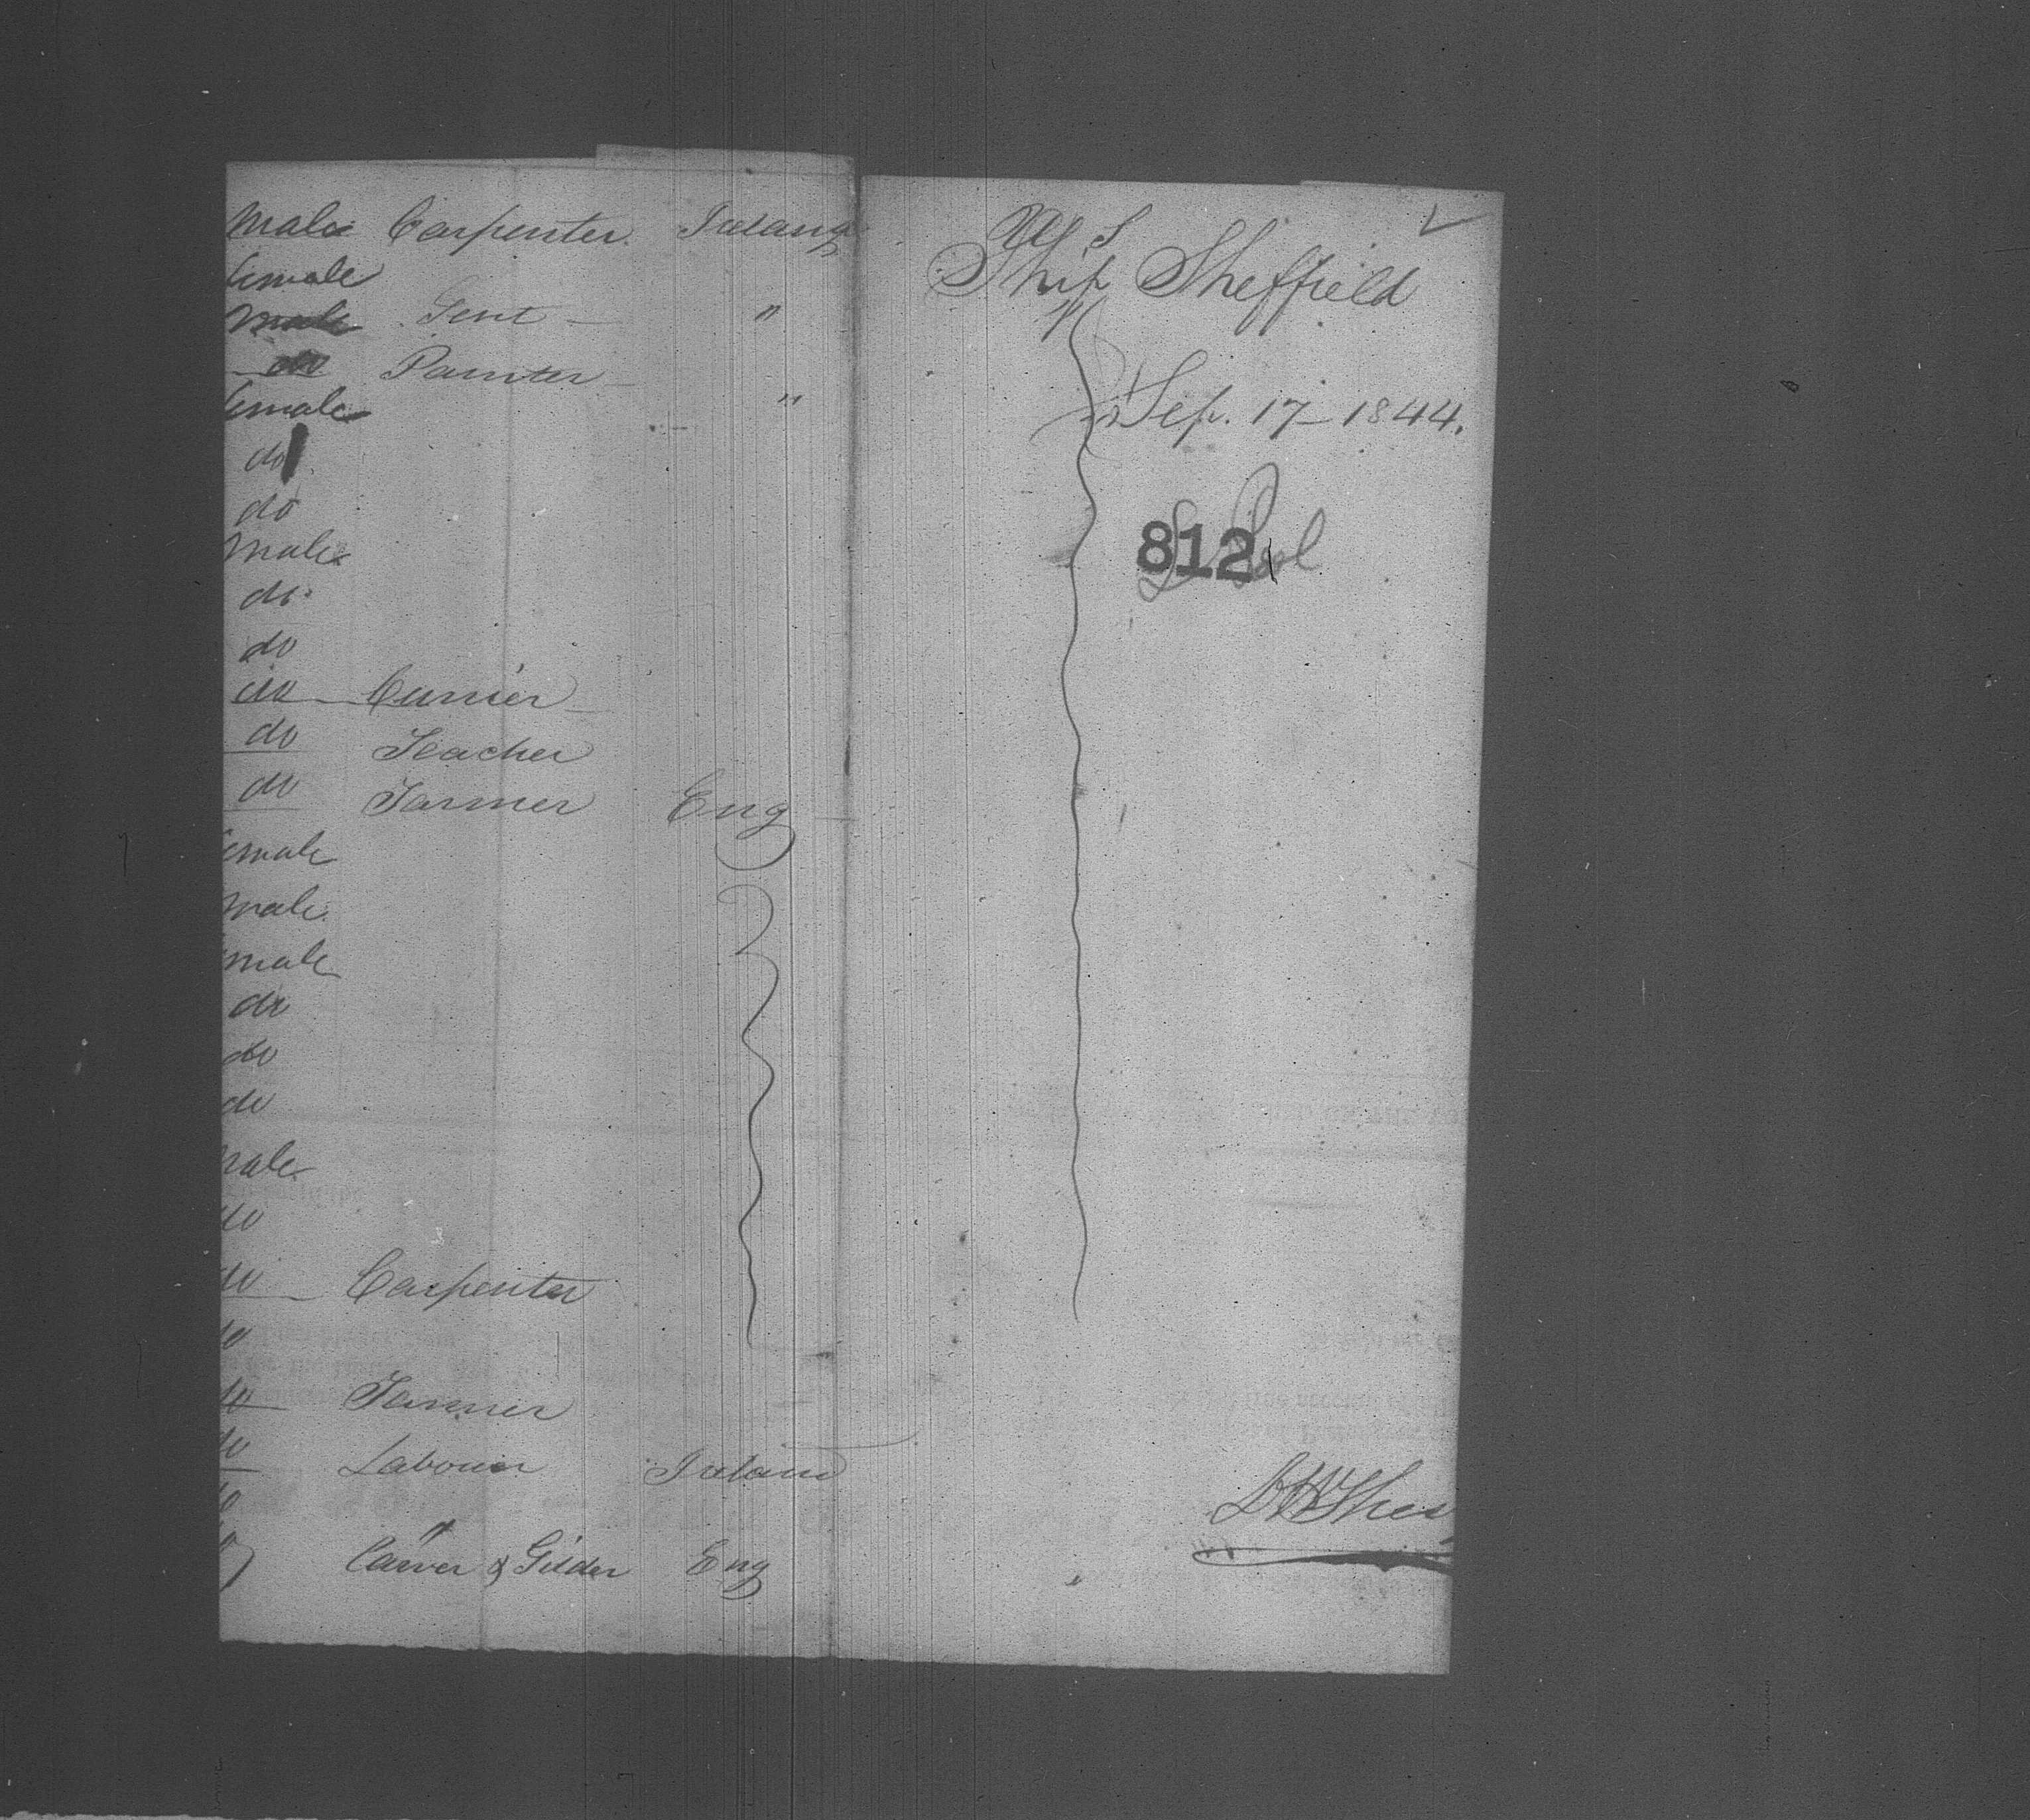 Male Carpenter. Ireland
female
Male Gent - "
do Painter -
female "
do
do
Male
do
do
do - Currier -
do Teacher
do Farmer Eng
emale
male
male
do
do
do
Male
do
do - Carpenter
do
do Farmer
do Labourer Ireland
do "
Carver & Gilder Eng
Ship Sheffield
Sep. 17 - 1844.
L Pool
812